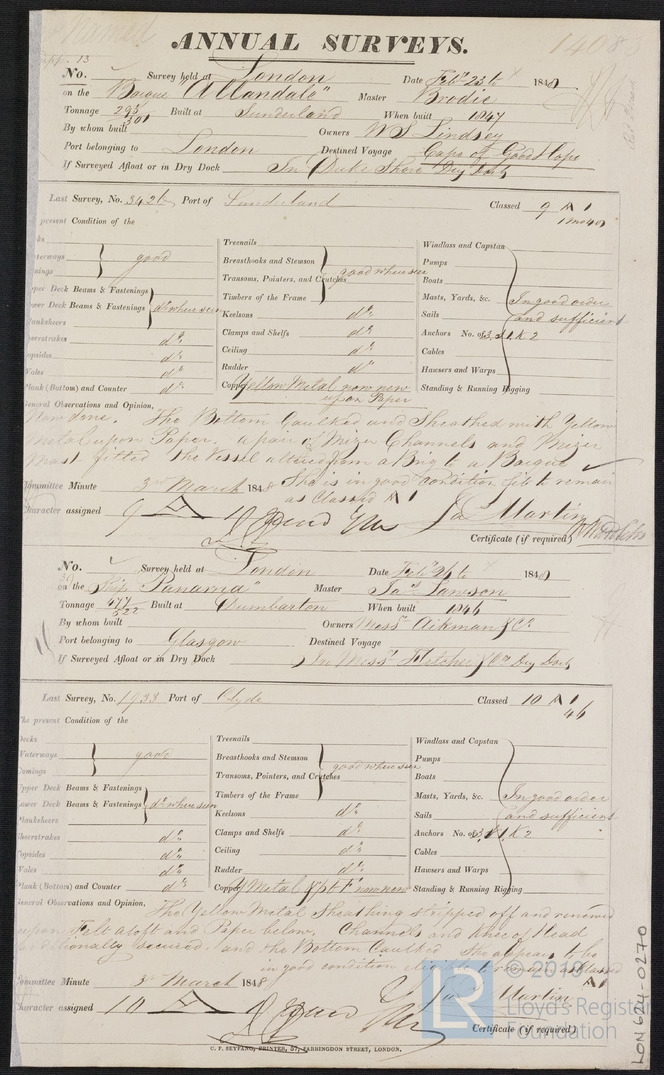 14083
ANNUAL SURVEYS.
No. Survey held at London Date Feby 23rd 1848
on the Barque "Allandale" Master Brodie
Tonnage 295/301 Built at Sunderland When built 1847
By whom built Owners W S Lindsey
Port belonging to London Destined Voyage Cape of Good Hope
If Surveyed Afloat or in Dry Dock In Duke Shore Dry Dock
Last Survey, No. 3426 Port of Sunderland Classed 9 A 1
present Condition of the
good
Treenails
Breasthooks and Stemson
Transoms, Pointers, and Crutches good where seen
Timbers of the Frame
Windlass and Capstan
Pumps
Boats
Masts, Yards, &c. In good order
Sails and sufficient
Upper Deck Beams & Fastenings
Lower Deck Beams & Fastenings do where seen
Plansheers
Sheerstrakes do
Topsides do
Wales do
Plank (Bottom) and Counter do
Keelsons do
Clamps and Shelfs do
Ceiling do
Rudder do
Copper Yellow Metal now new
upon Paper
Anchors No. of 3, S1, K2
Cables
Hawsers and Warps
Standing & Running Rigging
General Observations and Opinion,
The Bottom Caulked and Sheathed with Yellow
Metal upon Paper, a pair of Mizen Channels and Mizen
Mast fitted the Vessel altered from a Brig to a Barque
She is in good condition fit to remain
as Classed A 1
Committee Minute 3rd March 1848
Character assigned 9 A 1
Jas Martin
Certificate (if required)
No. Survey held at London Date Feby 26th 1848
on the Ship "Panama" Master Jas Lawson
Tonnage 477/522 Built at Dumbarton When built 1846
By whom built Owners Messrs Aikman & Co.
Port belonging to Glasgow Destined Voyage
If Surveyed Afloat or in Dry Dock In Messrs Fletcher & Cos Dry Dock
Last Survey, No. 1933 Port of Clyde Classed 10 A 1
46
The present Condition of the
Decks
Waterways good
Comings
Upper Deck Beams & Fastenings
Lower Deck Beams & Fastenings do where seen
Plansheers
Sheerstrakes do
Topsides do
Wales do
Plank (Bottom) and Counter do
Treenails
Breasthooks and Stemson
Transoms, Pointers, and Crutches good where seen
Timbers of the Frame
Keelsons do
Clamps and Shelfs do
Ceiling do
Rudder do
Copper Y Metal now new
Windlass and Capstan
Pumps
Boats
Masts, Yards, &c. In good order
Sails and sufficient
Anchors No. of 3, S1, K2
Cables
Hawsers and Warps
Standing & Running Rigging
General Observations and Opinion,
The Yellow Metal Sheathing stripped off and renewed
upon Felt aloft and Paper below. Channels and Knee of Head
additionally secured, and the Bottom Caulked She appears to be
in good condition to remain as Classed
Committee Minute 3rd March 1848
Character assigned 10 A 1
Jas Martin
Certificate (if required)
C. F. SEYFANG, PRINTER, 57, FARRINGDON STREET, LONDON.
LR
Lloyd's Register
Foundation
LON 624-0270